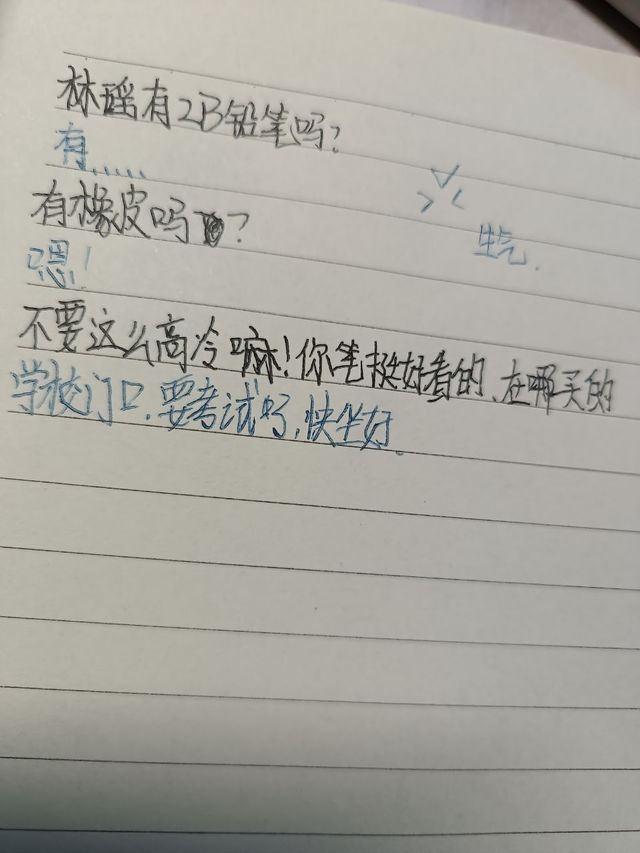 林瑶有2B铅笔吗?
有......
有橡皮吗?
生气.
嗯!
不要这么高冷嘛!你笔挺好看的、在哪买的
学校门口.要考试了,快坐好.